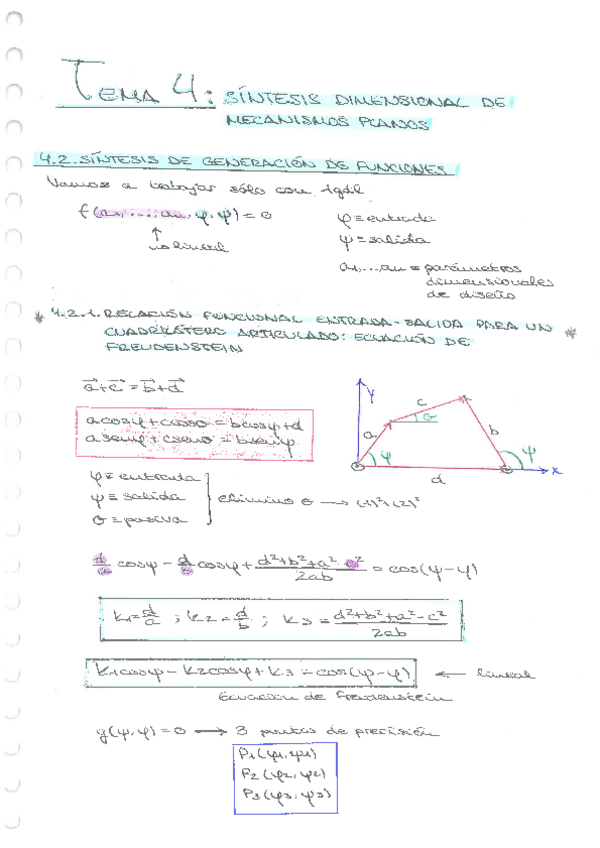 TEMA 4: SÍNTESIS DIMENSIONAL DE
MECANISMOS PLANOS
4.2. SÍNTESIS DE GENERACIÓN DE FUNCIONES
Vamos a trabajar sólo con 1gdl
f(a₁,...,aₙ, φ, ψ) = 0
no lineal
φ = entrada
ψ = salida
a₁,...aₙ = parámetros
dimensionales
de diseño
* 4.2.1. RELACIÓN FUNCIONAL ENTRADA-SALIDA PARA UN *
CUADRILÁTERO ARTICULADO: ECUACIÓN DE
FREUDENSTEIN
a + c = b + d
a cosφ + c cosθ = b cosψ + d
a senφ + c senθ = b senψ
y
c
θ
a
b
φ
ψ
x
d
φ = entrada
ψ = salida
θ = pasiva
elimino θ → (1)² + (2)²
d/a cosψ - d/b cosφ + (d²+b²+a²-c²)/2ab = cos(ψ-φ)
k₁ = d/a ; k₂ = d/b ; k₃ = (d²+b²+a²-c²)/2ab
k₁cosψ - k₂cosφ + k₃ = cos(ψ-φ) ← lineal
Ecuación de Freudenstein
g(ψ,φ) = 0 → 3 puntos de precisión
P₁(φ₁,ψ₁)
P₂(φ₂,ψ₂)
P₃(φ₃,ψ₃)